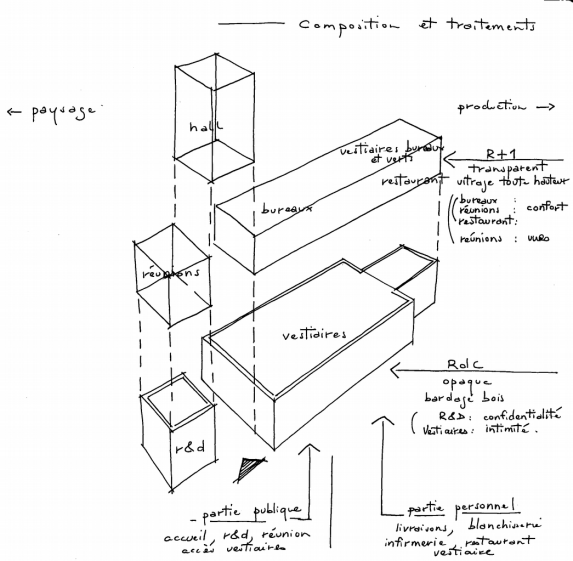 Composition et traitements
← paysage
production →
hall
vestiaires bureaux
et verts
restaurant
bureaux
R+1
transparent
vitrage toute hauteur
bureaux :
réunions : confort
restaurant:
réunions : vues
réunions
vestiaires
RdC
opaque
bardage bois
R&D : confidentialité
Vestiaires : intimité.
r&d
- partie publique
accueil, r&d, réunion
accès vestiaires
partie personnel
livraisons, blanchisserie
infirmerie, restaurant
vestiaire